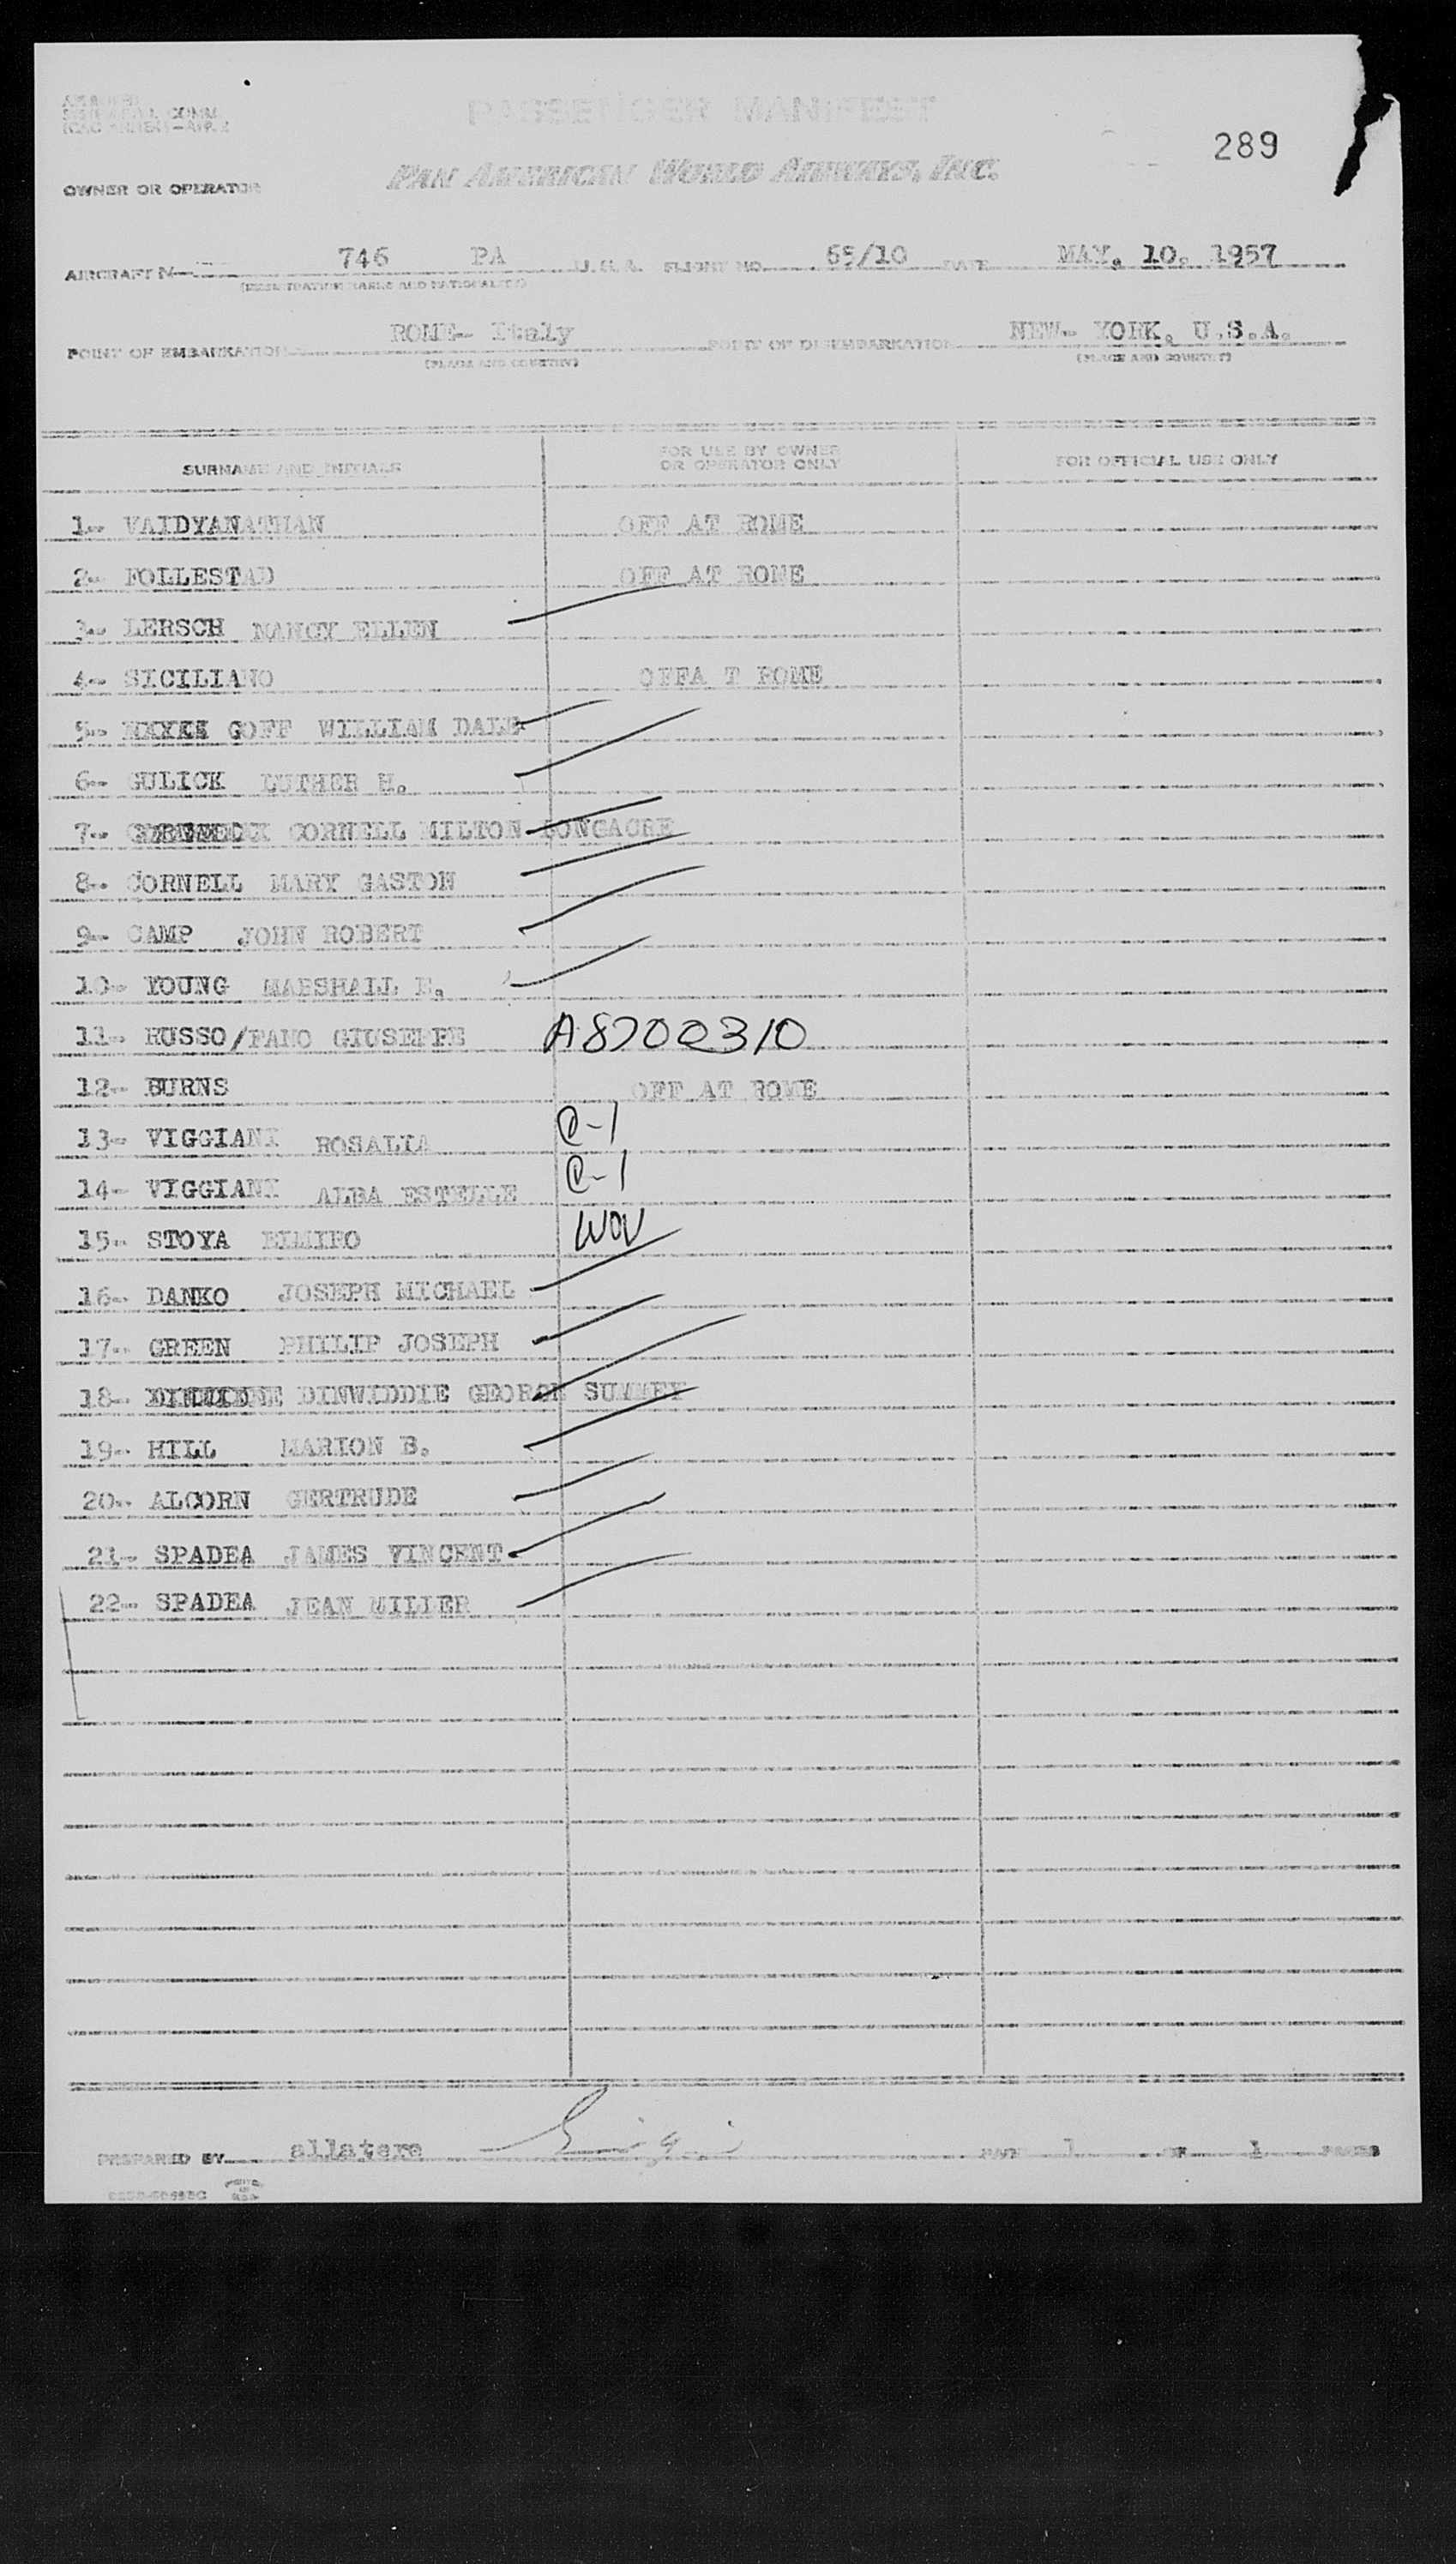 PASSENGER MANIFEST
289
PAN AMERICAN WORLD AIRWAYS, INC.
OWNER OR OPERATOR
AIRCRAFT N 746 PA U.S.A. FLIGHT NO. 65/10 DATE MAY, 10, 1957
ROME- Italy NEW- YORK, U.S.A.
POINT OF EMBARKATION POINT OF DISEMBARKATION
(PLACE AND COUNTRY) (PLACE AND COUNTRY)
SURNAME AND INITIALS FOR USE BY OWNER OR OPERATOR ONLY FOR OFFICIAL USE ONLY
1- VAIDYANATHAN OFF AT ROME
2- FOLLESTAD OFF AT ROME
3- LERSCH NANCY ELLEN
4- SICILIANO OFFA T ROME
5- GOFF WILLIAM DALE
6- GULICK LUTHER H.
7- CORNELL MILTON LONGACRE
8- CORNELL MARY GASTON
9- CAMP JOHN ROBERT
10- YOUNG MARSHALL E.
11- RUSSO/PANO GIUSEPPE A8700310
12- BURNS OFF AT ROME
13- VIGGIANI ROSALIA C-1
14- VIGGIANI ALBA ESTELLE C-1
15- STOYA
16- DANKO JOSEPH MICHAEL
17- GREEN PHILIP JOSEPH
18- DINWIDDIE GEORGE SUMMEY
19- HILL MARION B.
20- ALCORN GERTRUDE
21- SPADEA JAMES VINCENT
22- SPADEA JEAN MILLER
PREPARED BY allatere 1 OF 1 PAGES